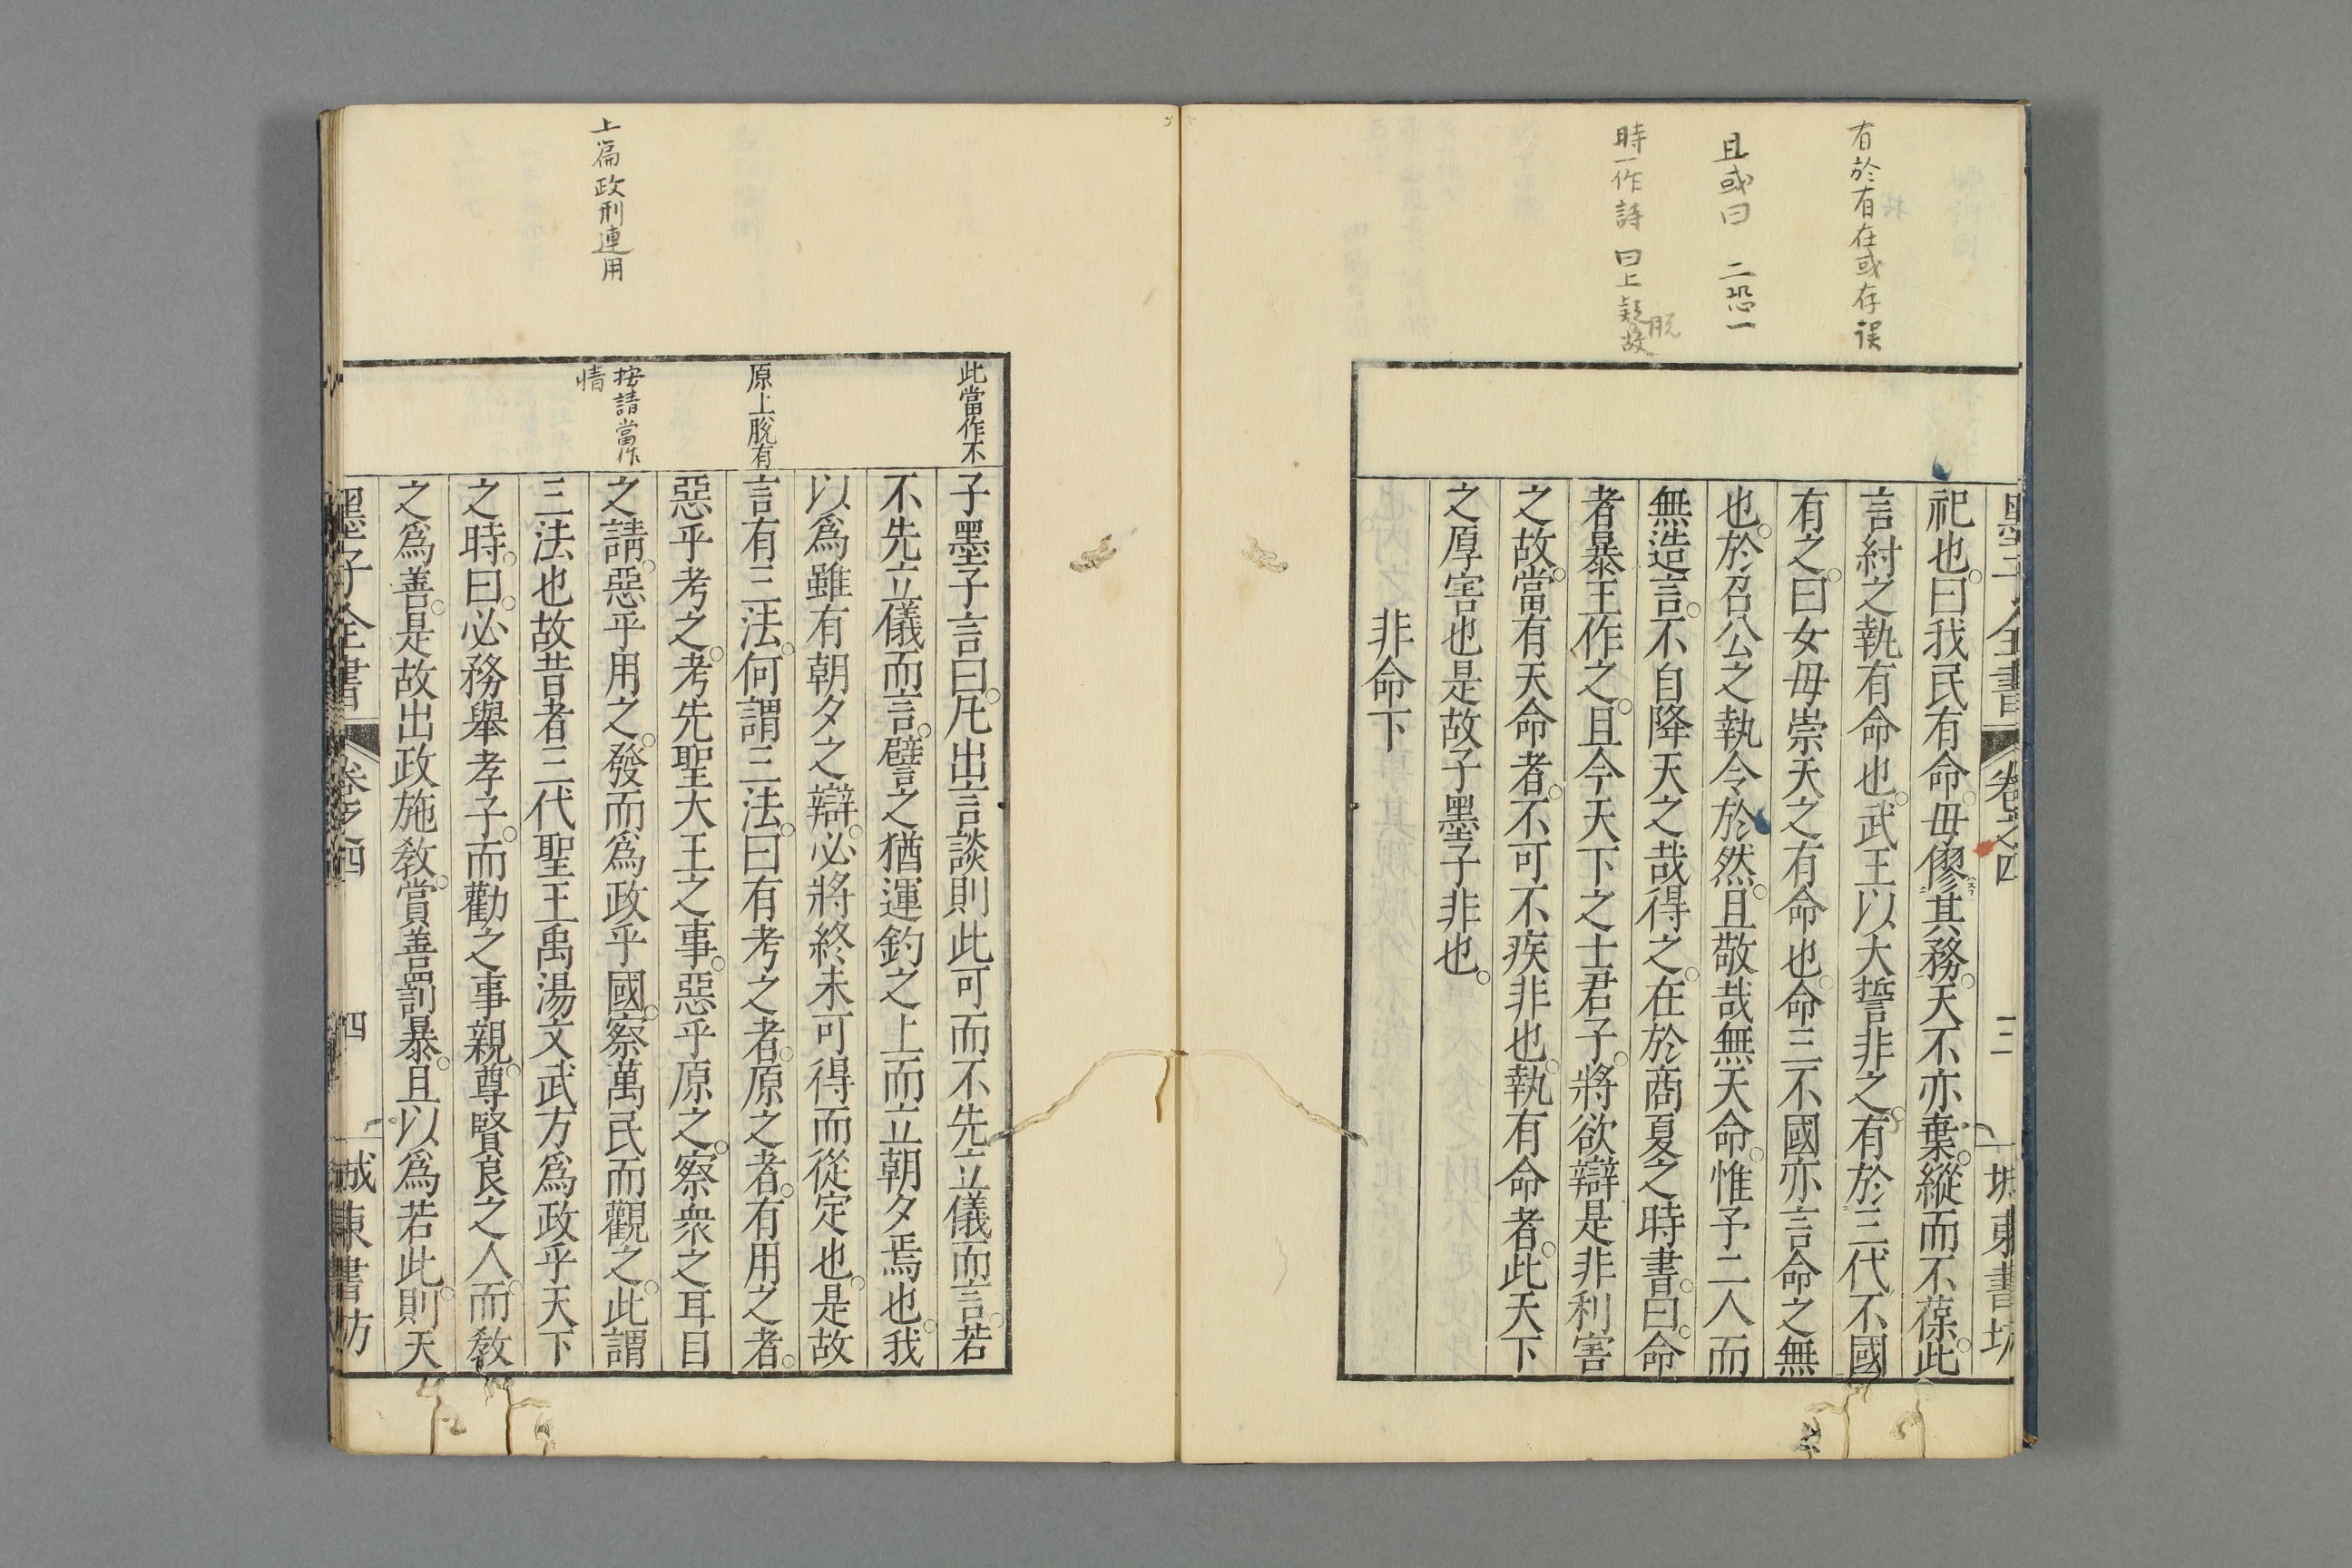 有於有在或存誤
且或曰　二恐一
時一作詩　曰上疑脱故
墨子全書　卷之四　三　城東書坊
祀也。曰我民有命。毋僇其務。天不亦棄。縱而不葆。此
言紂之執有命也。武王以大誓非之。有於三代不國
有之。曰女毋崇天之有命也。命三不國亦言命之無
也。於召公之執令於然。且敬哉無天命。惟予二人而
無造言。不自降天之哉得之。在於商夏之時書。曰。命
者暴王作之。且今天下之士君子。將欲辯是非利害
之故。當有天命者。不可不疾非也。執有命者。此天下
之厚害也是故子墨子非也。
非命下
上篇政刑連用
此當作不
原上脫有
按請當作
情
子墨子言曰。凡出言談則此可而不先立儀而言。若
不先立儀而言。譬之猶運鈞之上而立朝夕焉也。我
以爲雖有朝夕之辯。必將終未可得而從定也。是故
言有三法。何謂三法。曰有考之者。原之者。有用之者。
惡乎考之。考先聖大王之事。惡乎原之。察衆之耳目
之請。惡乎用之。發而爲政乎國。察萬民而觀之。此謂
三法也故昔者三代聖王禹湯文武方爲政乎天下
之時。曰。必務舉孝子。而勸之事親。尊賢良之人。而教
之爲善。是故出政施教。賞善罰暴。且以爲若此。則天
墨子全書　卷之四　四　城東書坊